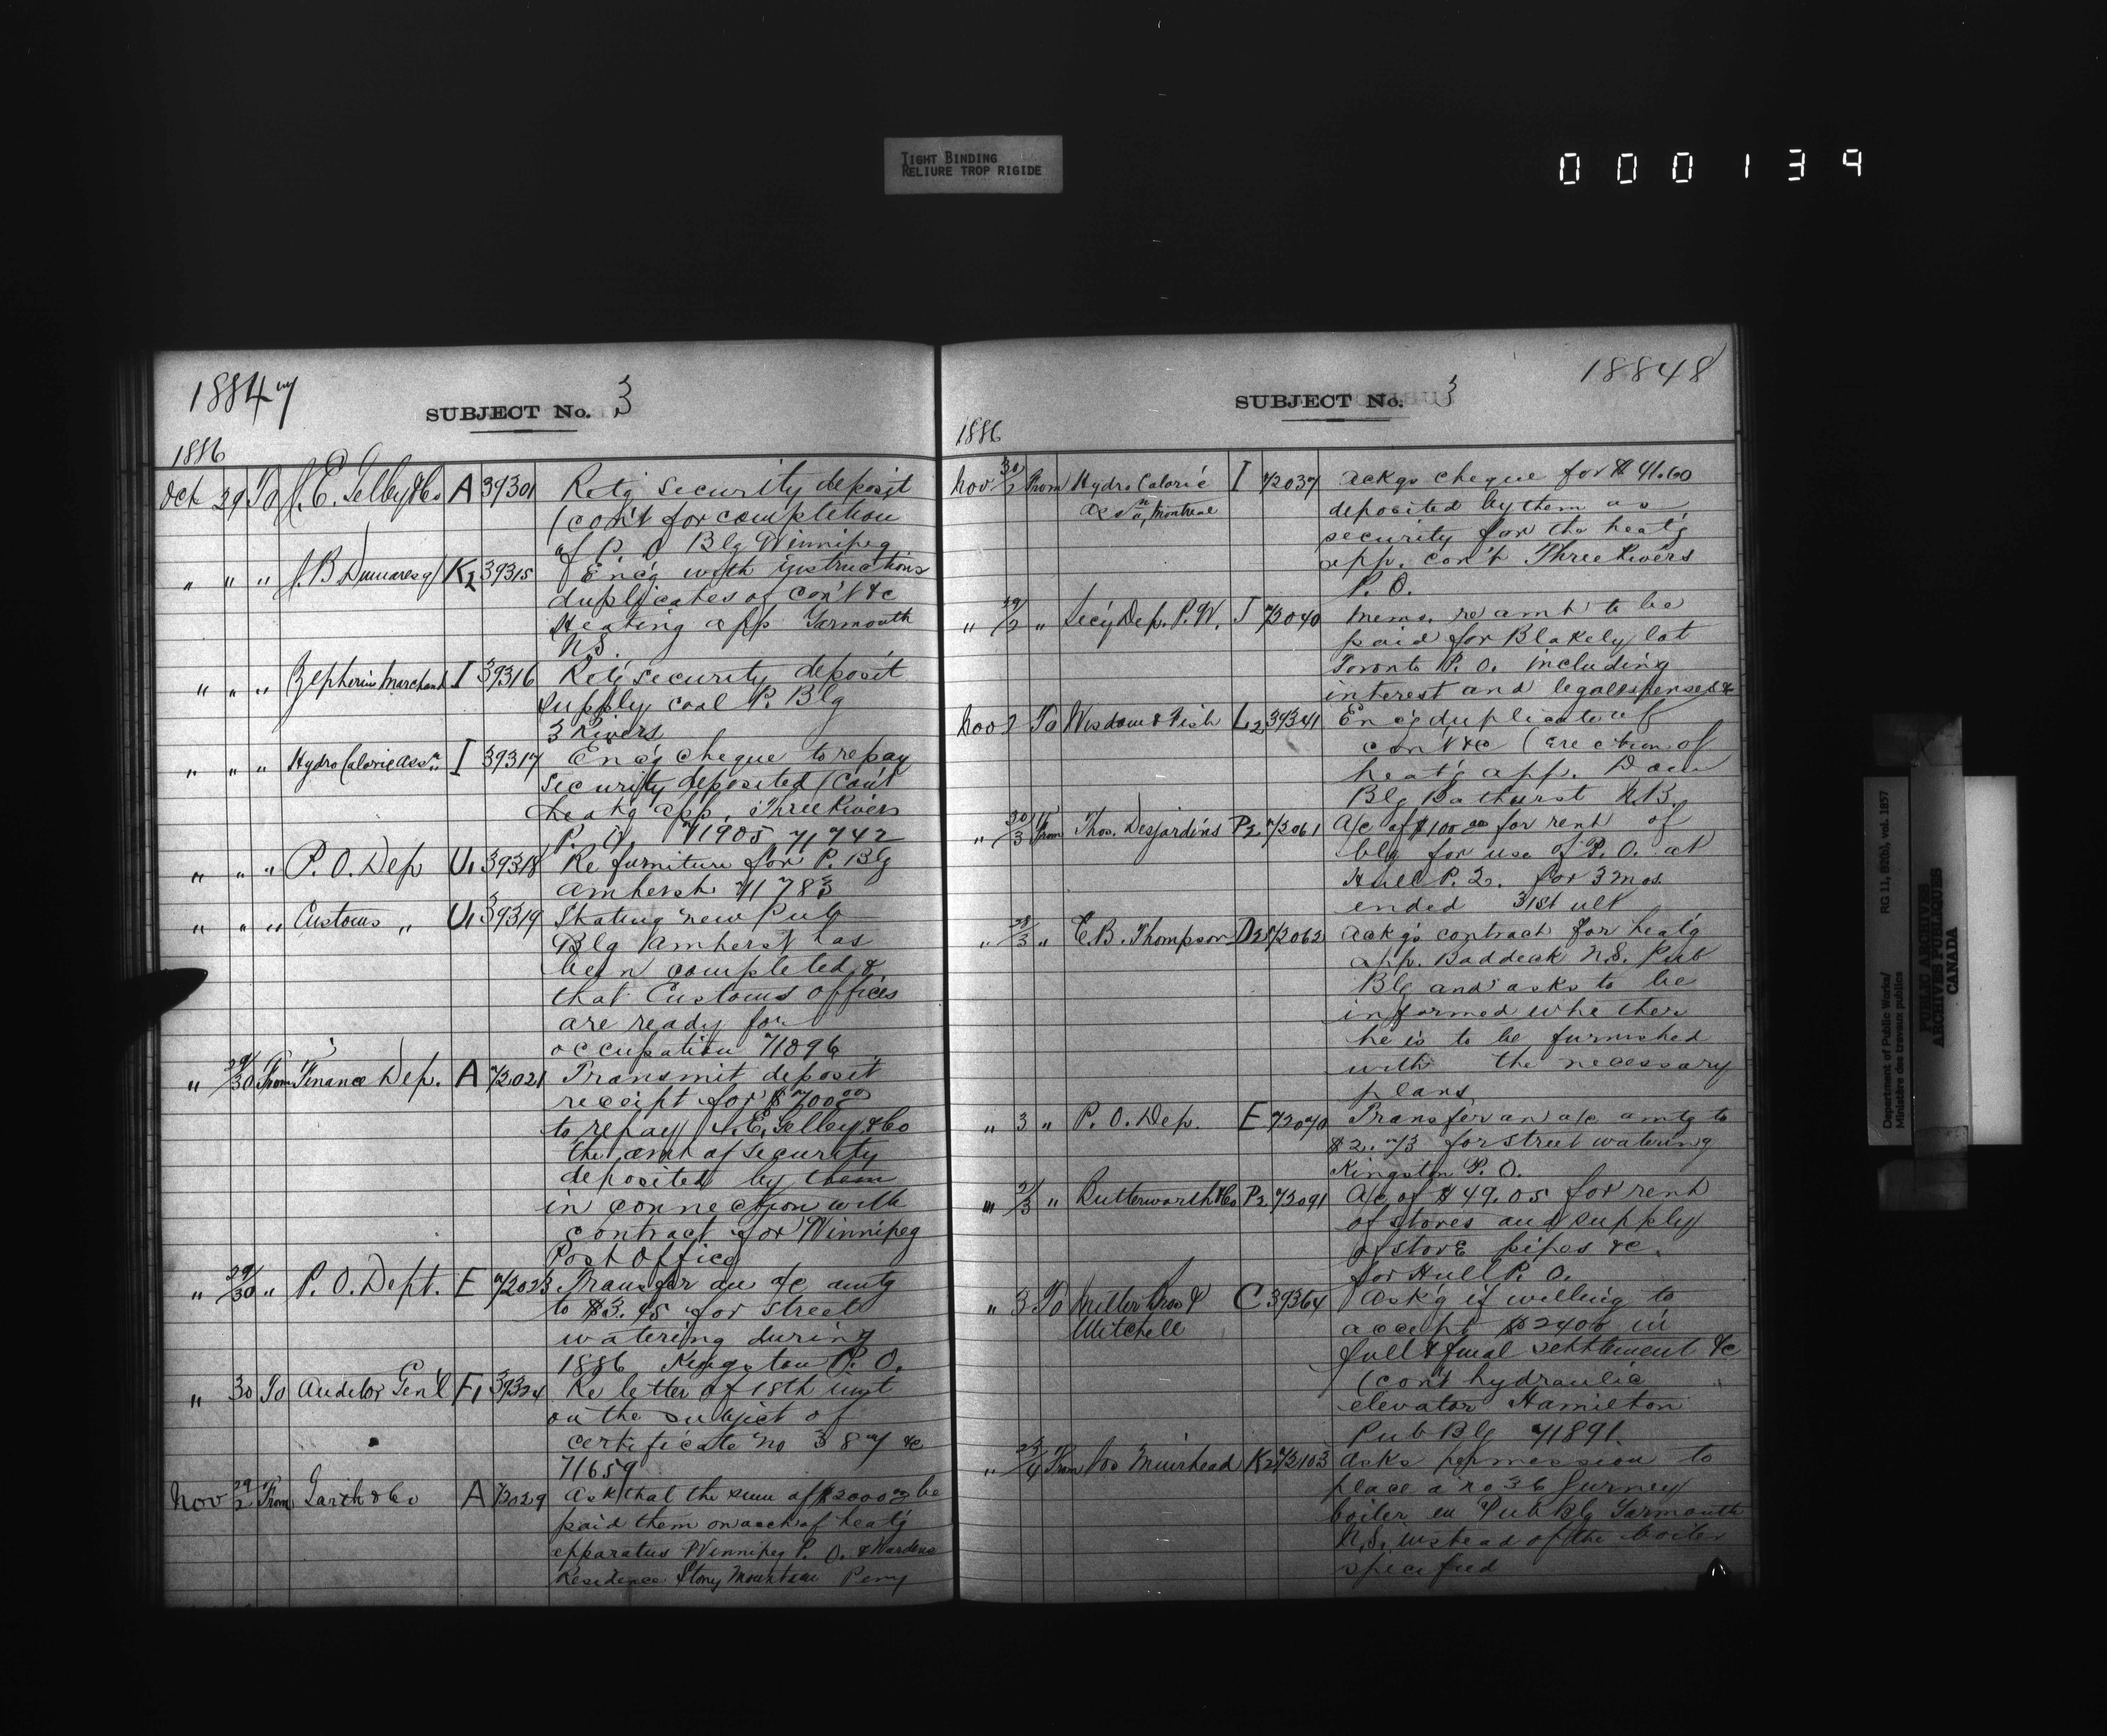 TIGHT BINDING
RELIURE TROP RIGIDE
000139
18847
SUBJECT No. 3
1886
Oct 29 To J. E. Gelley & Co A 39301 Retg security deposit
(con't for completion
of P. O Blg Winnipeg
" " " J. B Dumaresq K2 39315 Enc'g with instructions
duplicates of con't &c
Heating app Yarmouth
N.S.
" " " Zepherin Marchand I 39316 Retg security deposit
supply coal P. Blg
3 Rivers
" " " Hydro Caloric Assn I 39317 Enc'g cheque to repay
security deposited (Con't
heatg app. Three Rivers
P. O. 71905 71742
" " " P. O. Dep U1 39318 Re furniture for P. Blg
Amherst 71783
" " " Customs " U1 39319 Stating new Pub
Blg Amherst has
been completed &
that Customs offices
are ready for
occupation 71896
" 29/30 From Finance Dep. A 72021 Transmit deposit
receipt for $70000
to repay J. E. Gelley & Co
the amt of security
deposited by them
in connection with
contract for Winnipeg
Post Office
" 29/30 " P. O. Dept. E 72023 Transfer an a/c amtg
to $3.45 for street
watering during
1886 Kingston P. O.
" 30 To Auditor Gen'l F1 39324 Re letter of 18th inst
on the subject of
certificate no 387 &c
71659
Nov 29/2 From Garth & Co A 72029 Ask that the sum of $2000 be
paid them on acct of heatg
apparatus Winnipeg P. O. & Wardens
Residence Stony Mountain Peny
18848
SUBJECT No. 3
1886
Nov. 30/2 From Hydro Caloric I 72037 Ackgs cheque for $41.60
Assn, Montreal deposited by them as
security for the heatg
app. con't Three Rivers
P. O.
" 29/2 " Secy Dep. P. W. J 72040 Memo. re amt to be
paid for Blakely lot
Toronto P. O. including
interest and legal expenses &c
Nov 2 To Wisdom & Fish L2 39341 Enc'g duplicate of
con't &c (erection of
heat'g app. Dom
Blg Bathurst N.B.
" 30/3 From Thos. Desjardins P2 72061 A/c of $100.00 for rent of
blg for use of P. O. at
Hull P. Q. for 3 mos.
ended 31st ult
" 28/3 " E. B. Thompson D2 72062 Ackgs contract for heatg
app. Baddeck N.S. Pub
Blg and asks to be
informed whether
he is to be furnished
with the necessary
plans
" 3 " P. O. Dep. E 72070 Transfer an a/c amtg to
$2.73 for street watering
Kingston P. O.
" 21/3 " Butterworth & Co P2 72091 A/c of $49.05 for rent
of stoves and supply
of stove pipes &c.
for Hull P. O.
" 3 To Miller Bros & C 39364 Ask'g if willing to
Mitchell accept $2400 in
full & final settlement &c
(con't hydraulic
elevator Hamilton
Pub Blg 71891.
" 23/4 From Muirhead K2 72103 Asks permission to
place a no 36 Gurney
boiler in Pub Blg Yarmouth
N.S. instead of the boiler
specified
Department of Public Works/
Ministère des travaux publics
RG 11, B2(b), vol. 1857
PUBLIC ARCHIVES
ARCHIVES PUBLIQUES
CANADA